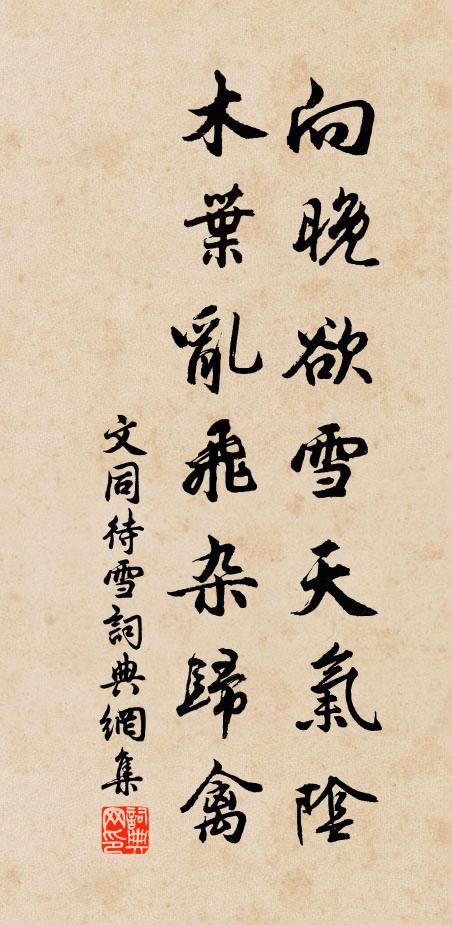 向晚欲雪天氣陰
木葉亂飛杂歸禽
文同待雪詞典網集
詞典网印